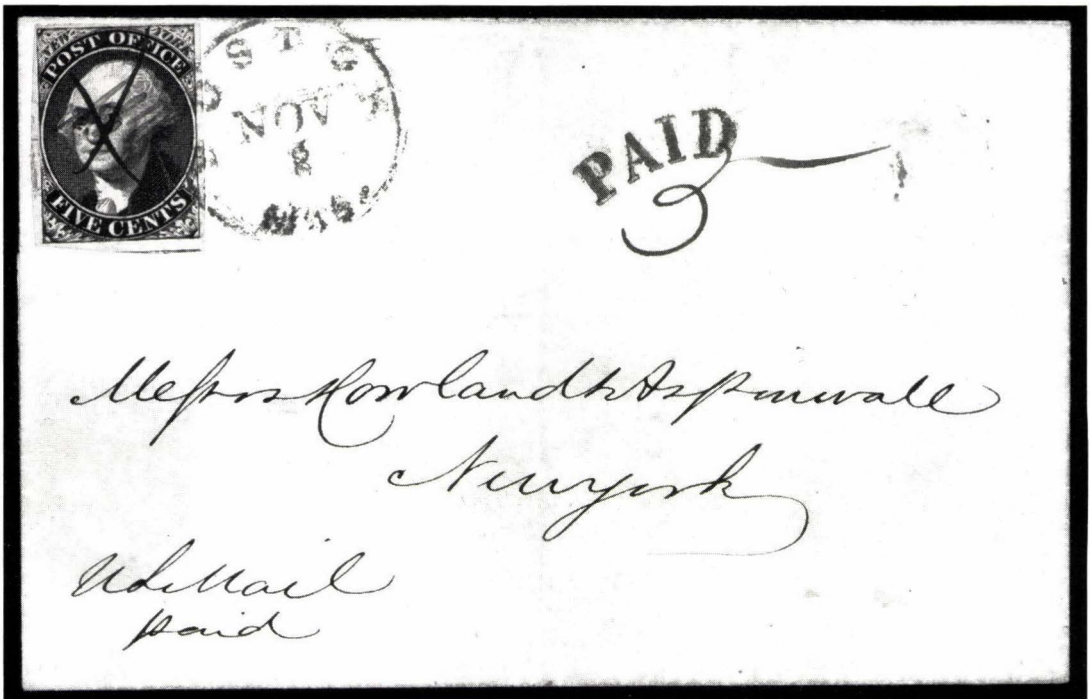 POST OFFICE
FIVE CENTS
NOV
8
Mass
PAID
5
Messrs Howland & Aspinwall
New york
U S Mail
paid